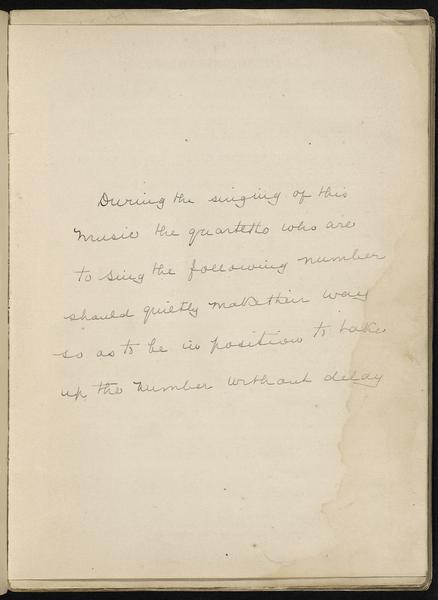 During the singing of this
music the quartetto who are
to sing the following number
should quietly make their way
so as to be in position to take
up the number without delay